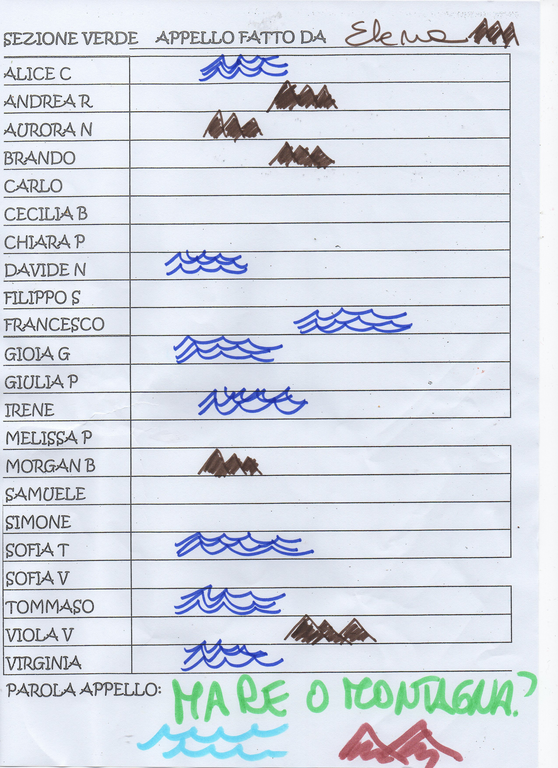 SEZIONE VERDE APPELLO FATTO DA Elena
ALICE C
ANDREA R
AURORA N
BRANDO
CARLO
CECILIA B
CHIARA P
DAVIDE N
FILIPPO S
FRANCESCO
GIOIA G
GIULIA P
IRENE
MELISSA P
MORGAN B
SAMUELE
SIMONE
SOFIA T
SOFIA V
TOMMASO
VIOLA V
VIRGINIA
PAROLA APPELLO: MARE O MONTAGNA?